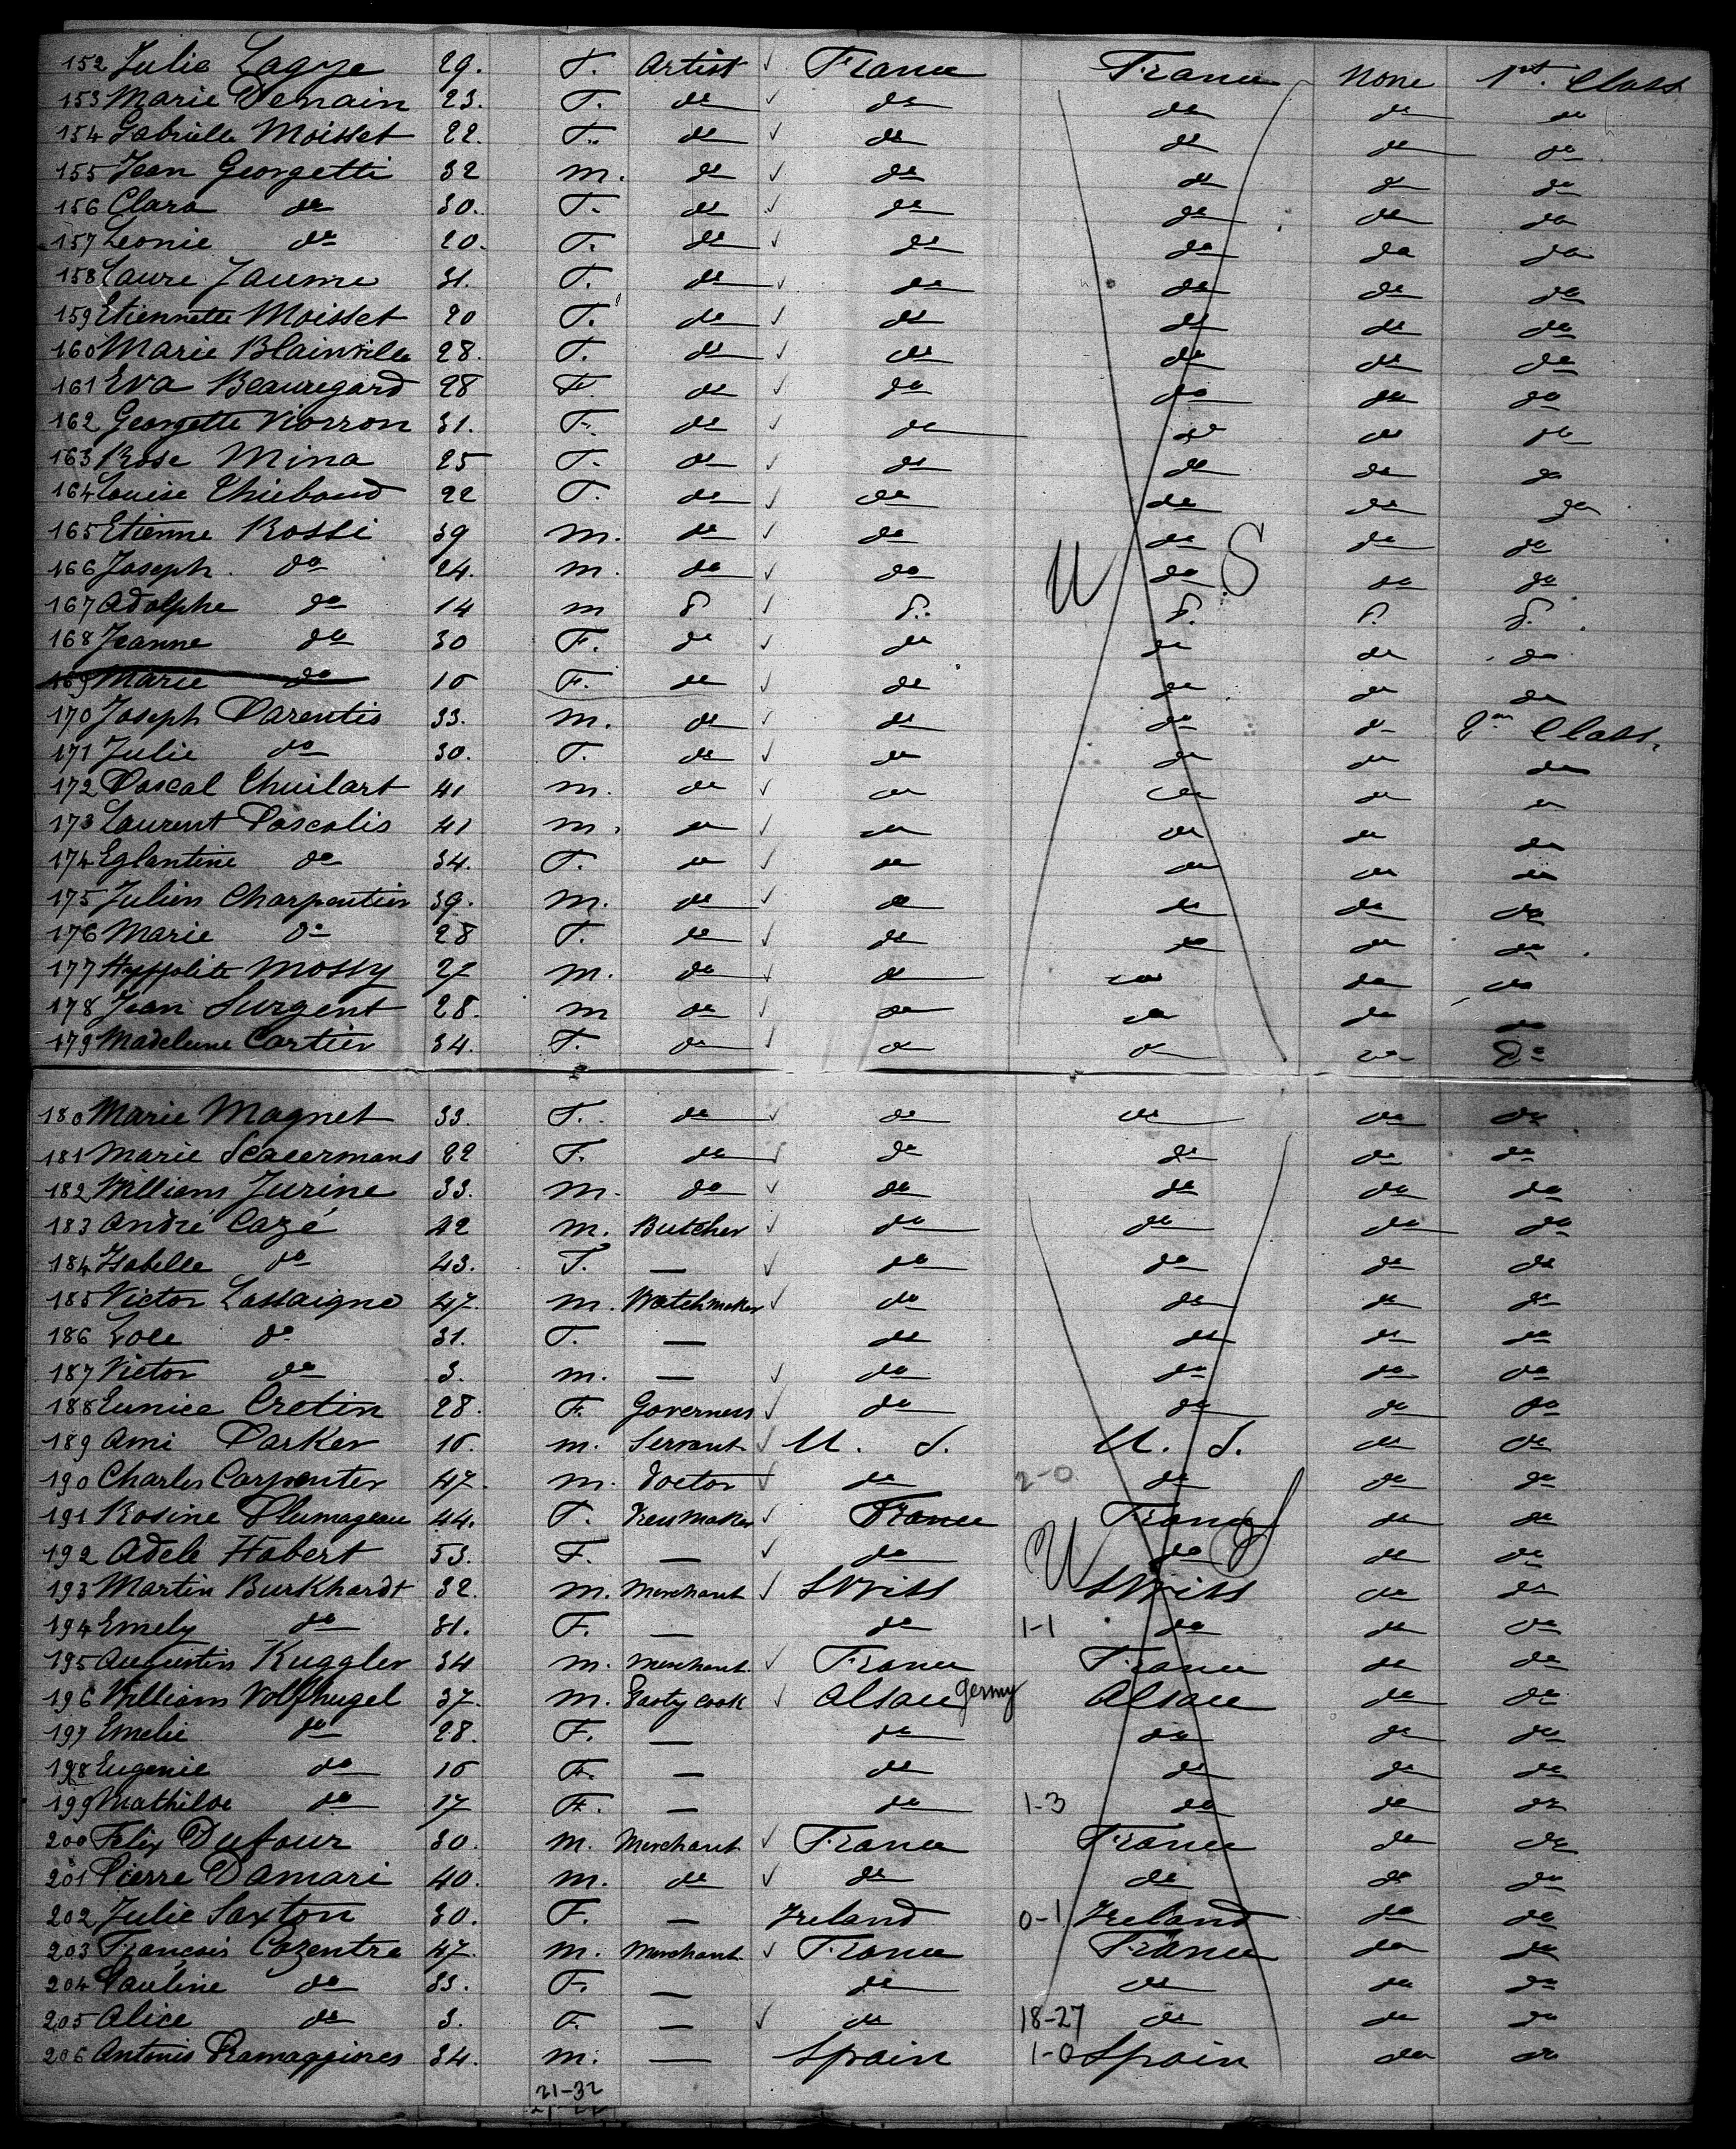 152 Julia Lagye 29. F. Artist ✓ France France None 1st Class
153 Marie Denain 23. F. do ✓ do do do do
154 Gabrielle Moisset 22. F. do ✓ do do do do
155 Jean Georgetti 32 m. do ✓ do do do do
156 Clara do 30. F. do ✓ do do do do
157 Leonie do 20. F. do ✓ do do do do
158 Laure Jaume 31. F. do ✓ do do do do
159 Etiennette Moisset 20 F. do ✓ do do do do
160 Marie Blainville 28. F. do ✓ do do do do
161 Eva Beauregard 28 F. do ✓ do do do do
162 Georgette Viorron 31. F. do ✓ do do do do
163 Rose Mina 25 F. do ✓ do do do do
164 Louise Thiebaud 22 F. do ✓ do do do do
165 Etienne Rossi 39 m. do ✓ do do do do
166 Joseph do 24. m. do ✓ do U do S do do
167 Adolphe do 14 m ✓
168 Jeanne do 30 F. do ✓ do do do do
169 Marie do 10 F. do ✓ do do do do
170 Joseph Parentis 33. m. do ✓ do do do Class.
171 Julie do 30. F. do ✓ do do do do
172 Pascal Thuilart 41 m. do ✓ do do do do
173 Laurent Pascalis 41 m. do ✓ do do do do
174 Eglantine do 34. F. do ✓ do do do do
175 Julien Charpentier 39. m. do ✓ do do do do
176 Marie do 28 F. do ✓ do do do do
177 Hyppolite Mossy 27 m. do ✓ do do do do
178 Jean Surgent 28. m do ✓ do do do do
179 Madeleine Cartier 34. F. do ✓ do do do do
180 Marie Magnet 33. F. do ✓ do do do do
181 Marie 22 F. do ✓ do do do do
182 Williams Jurine 33. m. do ✓ do do do do
183 André Cazé 42 m. Butcher ✓ do do do do
184 Isabelle do 43. F. — ✓ do do do do
185 Victor Lassaigne 47. m. Watchmaker ✓ do do do do
186 Zoe do 31. F. — do do do do
187 Victor do 3. m. — ✓ do do do do
188 Eunice Cretin 28. F. Governess ✓ do do do do
189 Ami Parker 10. m. Servant ✓ U. S. U. S. do do
190 Charles Carpenter 47. m. Doctor ✓ do 2-0 do do do
191 Rosine Plumageau 44. F. Dressmaker ✓ France France do do
192 Adele Habert 53. F. — ✓ do U do S do do
193 Martin Burkhardt 32. m. Merchant ✓ Swiss Swiss do do
194 Emely do 31. F. — do 1-1 do do do
195 Augustin Kuggler 34 m. Merchant ✓ France France do do
196 Williams Volfhugel 37. m. Pasty cook ✓ Alsace Germy Alsace do do
197 Emelie do 28. F. — do do do do
198 Eugenie do 10 F. — do do do do
199 Mathilde do 17 F. — do 1-3 do do do
200 Felix Dufour 30. m. Merchant ✓ France France do do
201 Pierre Damari 40. m. do ✓ do do do do
202 Julie Saxton 30. F. — Ireland 0-1 Ireland do do
203 François Cozentre 47. m. Merchant ✓ France France do do
204 Pauline do 33. F. — do do do do
205 Alice do 3. F. — ✓ do 18-27 do do do
206 Antonio Ramaggiores 34. m. — Spain 1-0 Spain do do
21-32